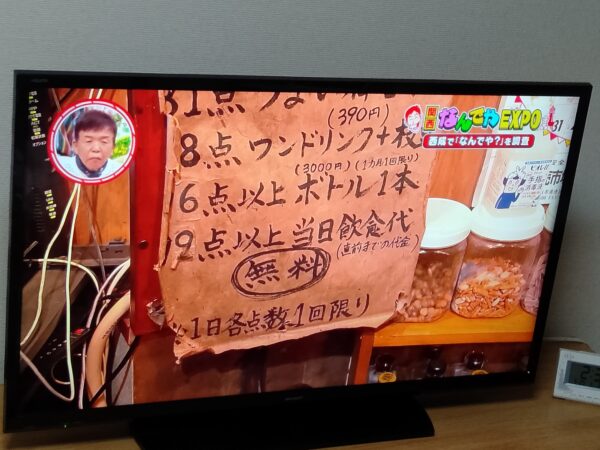 関西
なんでやEXPO
西成で「なんでや?」を調査
31点
(390円)
8点 ワンドリンク+枝
(3000円) (1カ月1回限り)
6点以上 ボトル1本
9点以上 当日飲食代
(直前までの代金)
無料
※1日各点数1回限り
31